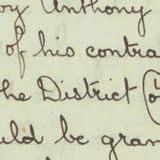 by Anthony
of his contra
he District Co
uld be gran